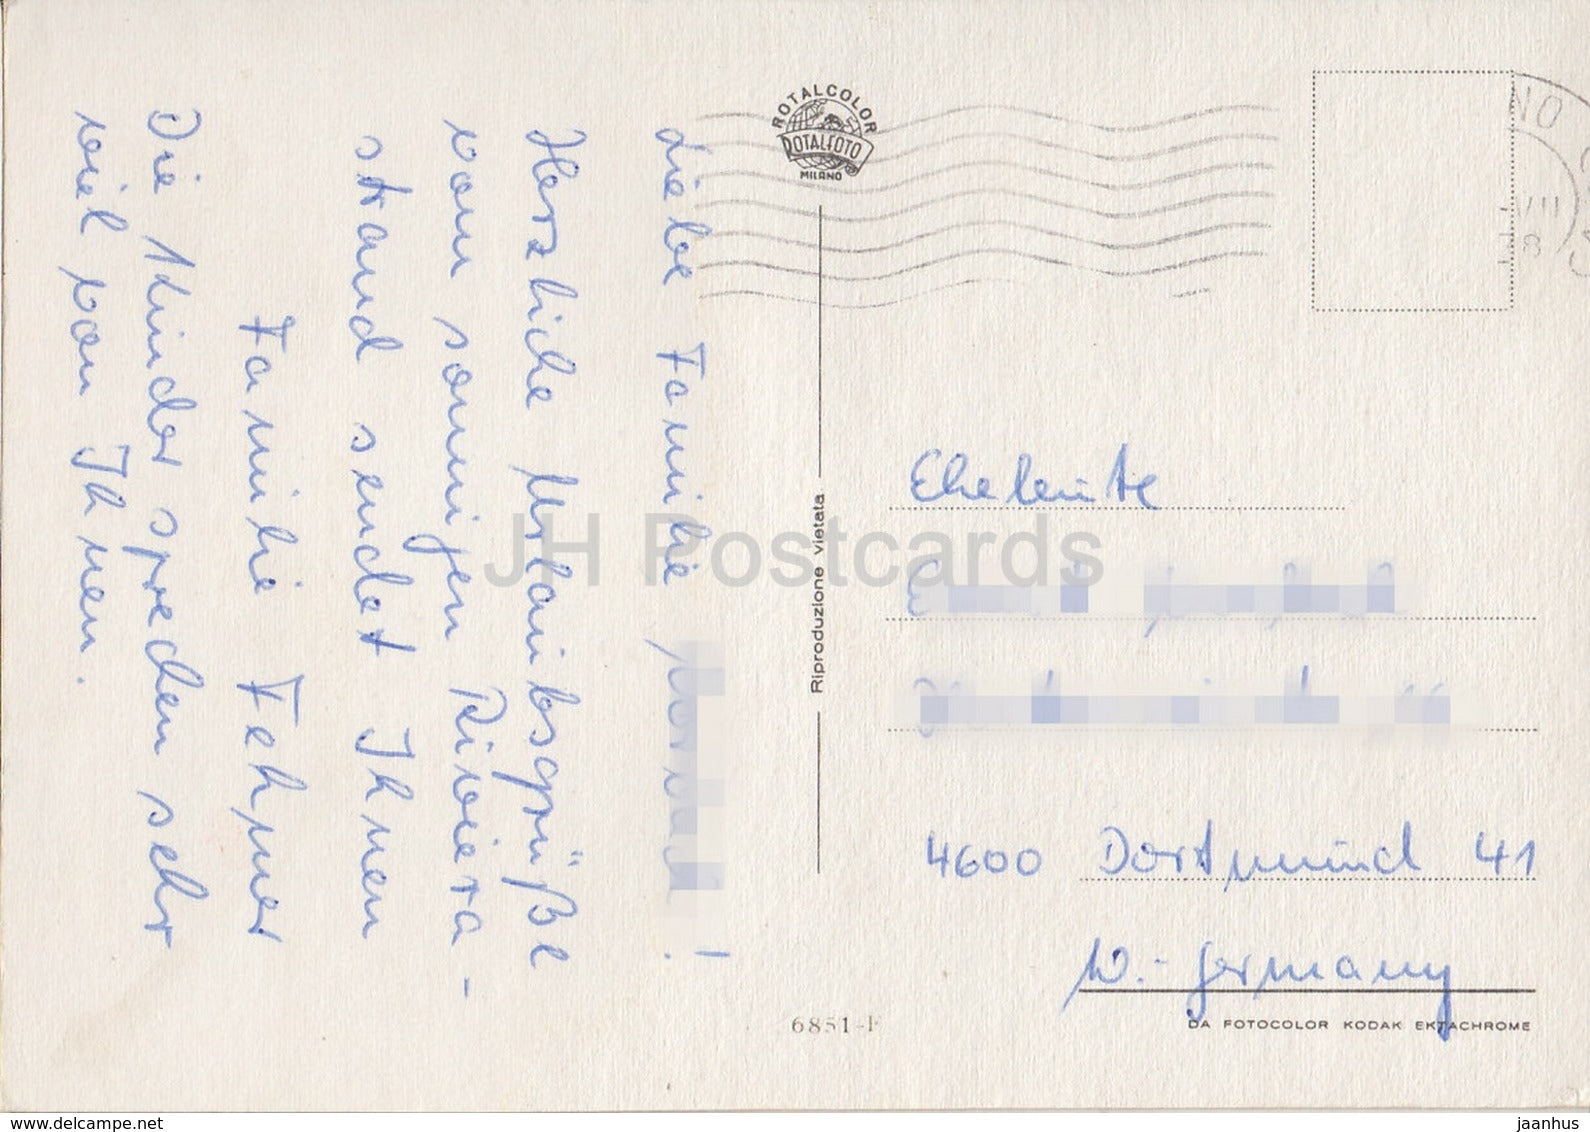 Liebe Familie !
Herzliche Urlaubsgrüße
vom sonnigen Riviera-
strand sendet Ihnen
Familie Fehmer
Die Kinder sprechen sehr
viel von Ihnen.
ROTALCOLOR
ROTALFOTO
MILANO
Riproduzione vietata
NO
VIII
Eheleute
4600 Dortmund 41
W.-Germany
6851-F
DA FOTOCOLOR KODAK EKTACHROME
JH Postcards
www.delcampe.net
jaanhus